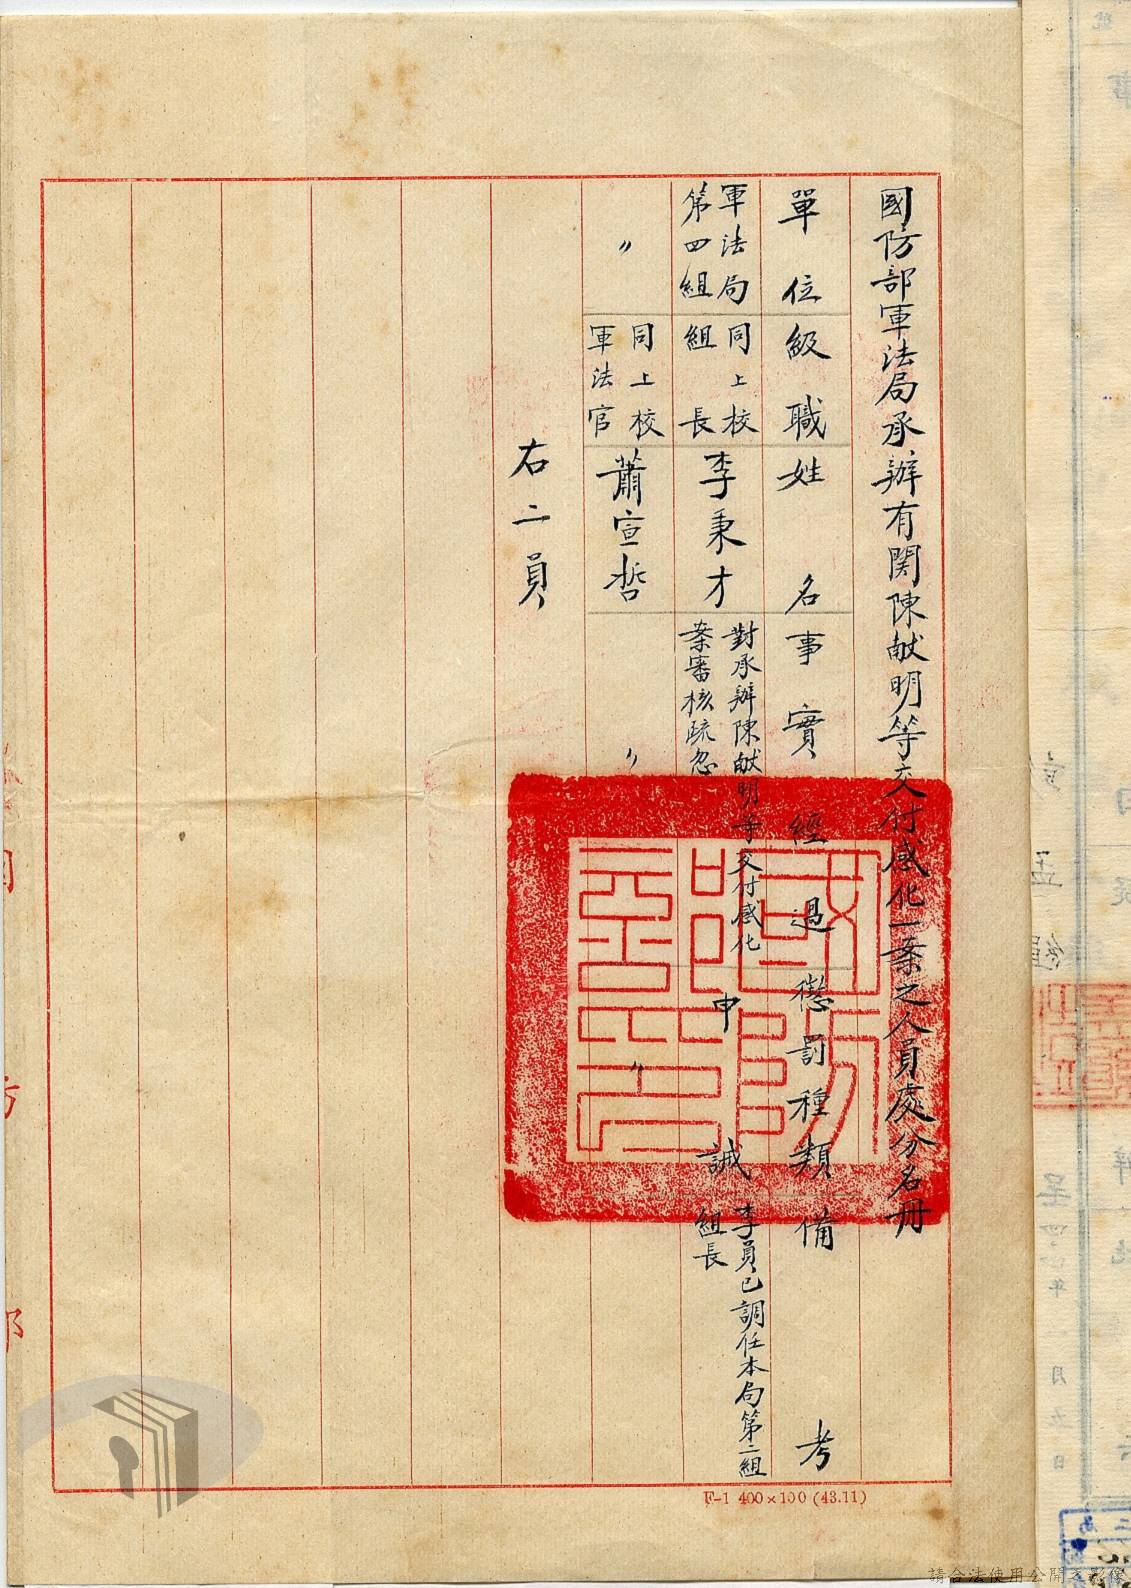 國防部軍法局承辦有関陳献明等交付感化一案之人員處分名册
單位 級職 姓名 事實經過 懲罰種類 備考
軍法局
第四組
同上校
組長
李秉才
對承辦陳献明等交付感化
案審核疏忽
申誡
李員已調任本局第二組
組長
〃
同上校
軍法官
蕭宣哲
〃
〃
右二員
國防部印
F-1 400×100 (43.11)
請合法使用公開之影像